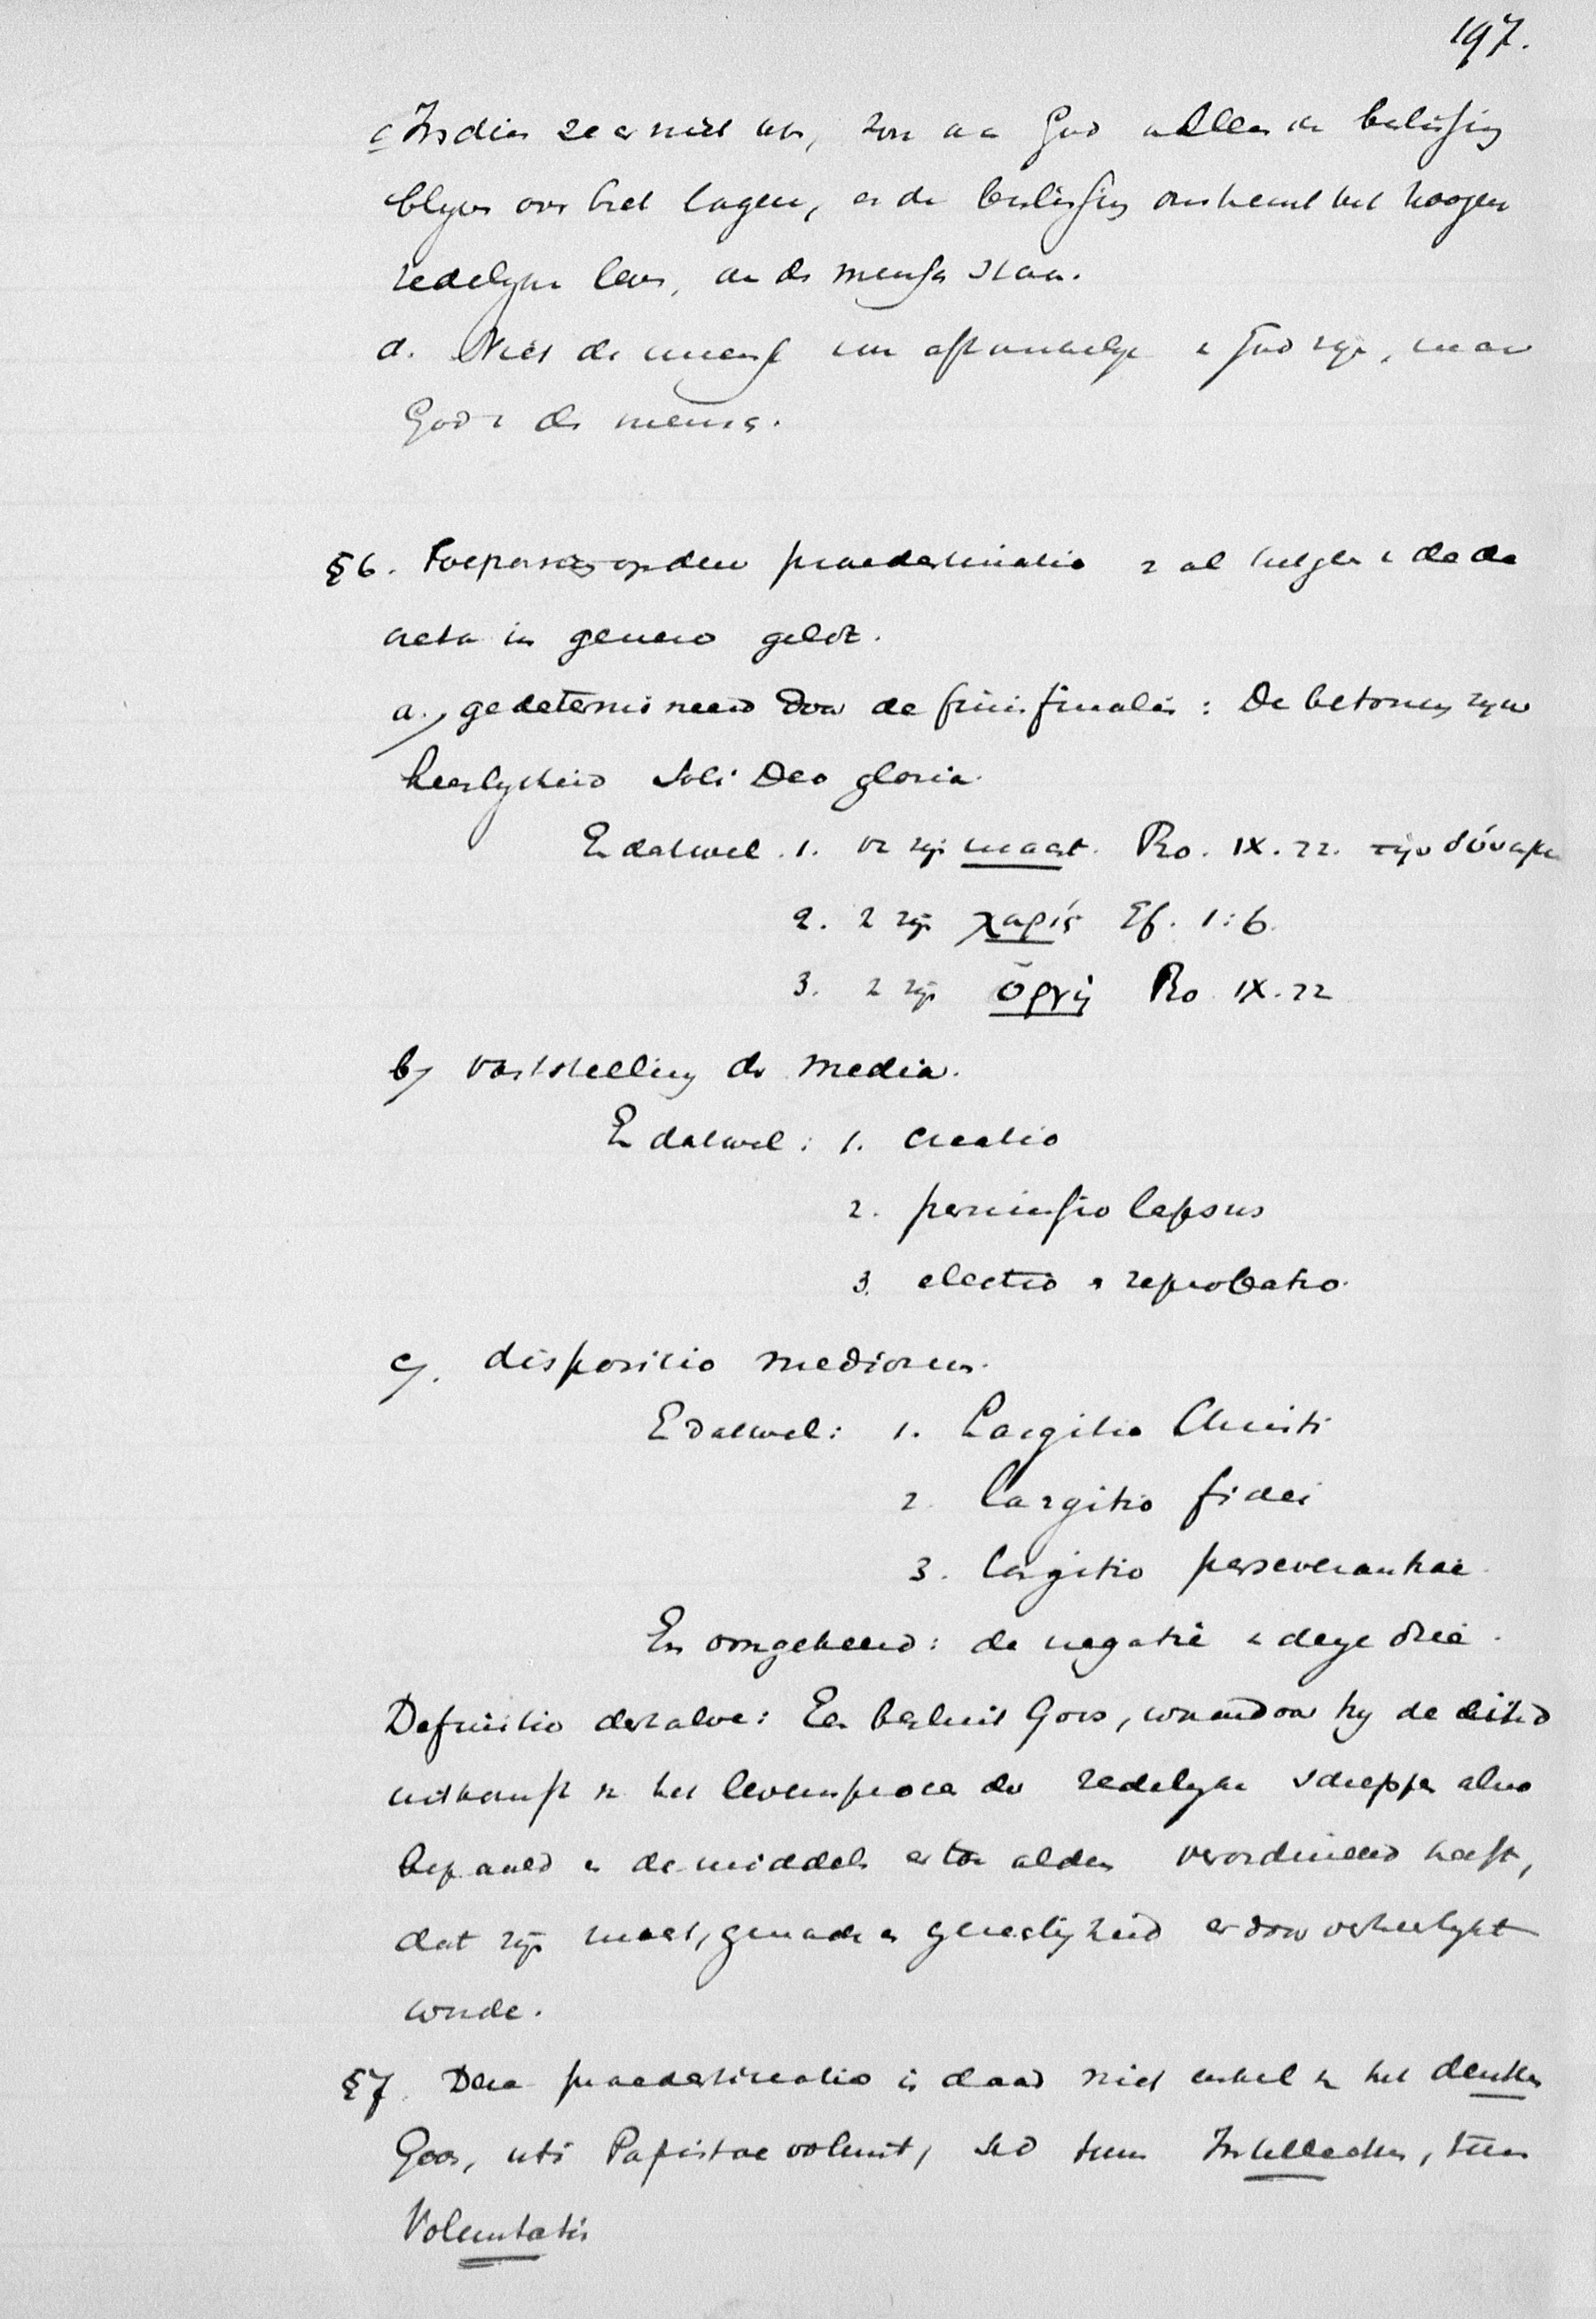 197.
c Indien ze er niet was, zou aan God alleen de beslissing
blijven over het lagere, en de beslissing omtrent het hoogere
redelijke leven, aan de mensch staan.
d. Niet de mensch zou afhankelijk v God zijn, maar
God v de mensch.
§6. Toepassing op den praedestinatio v al hetgeen v de
acta in genere geldt.
a., gedetermineerd door de finis finalis: De betooning zijner
heerlijkheid Soli Deo gloria.
En dat wel. 1. v zijn macht. Ro. IX. 22. την δύναμιν
2. v zijn χαρίς Ef. 1:6.
3. v zijn ὀργή Ro IX. 22
b, vaststelling der media.
En dat wel: 1. creatio
2. permissio lapsus
3. electio & reprobatio.
c,. dispositio mediorum.
En dat wel: 1. Largitio Christi
2. largitio fidei
3. largitio perseverantiae.
En omgekeerd: de negatie v deze drie.
Definitio derhalve: Een besluit Gods, waardoor hij de
uitkomst v het levensproces der redelijke schepselen alzoo
bepaald en de middelen ertoe verordineerd heeft,
dat zijn macht, genade en gerechtigheid erdoor verheerlijkt
worde.
§7. Deze praedestinatio is daad niet enkel v het denken
Gods, uti Papistae volunt, sed tum Intellectus, tum
Voluntatis